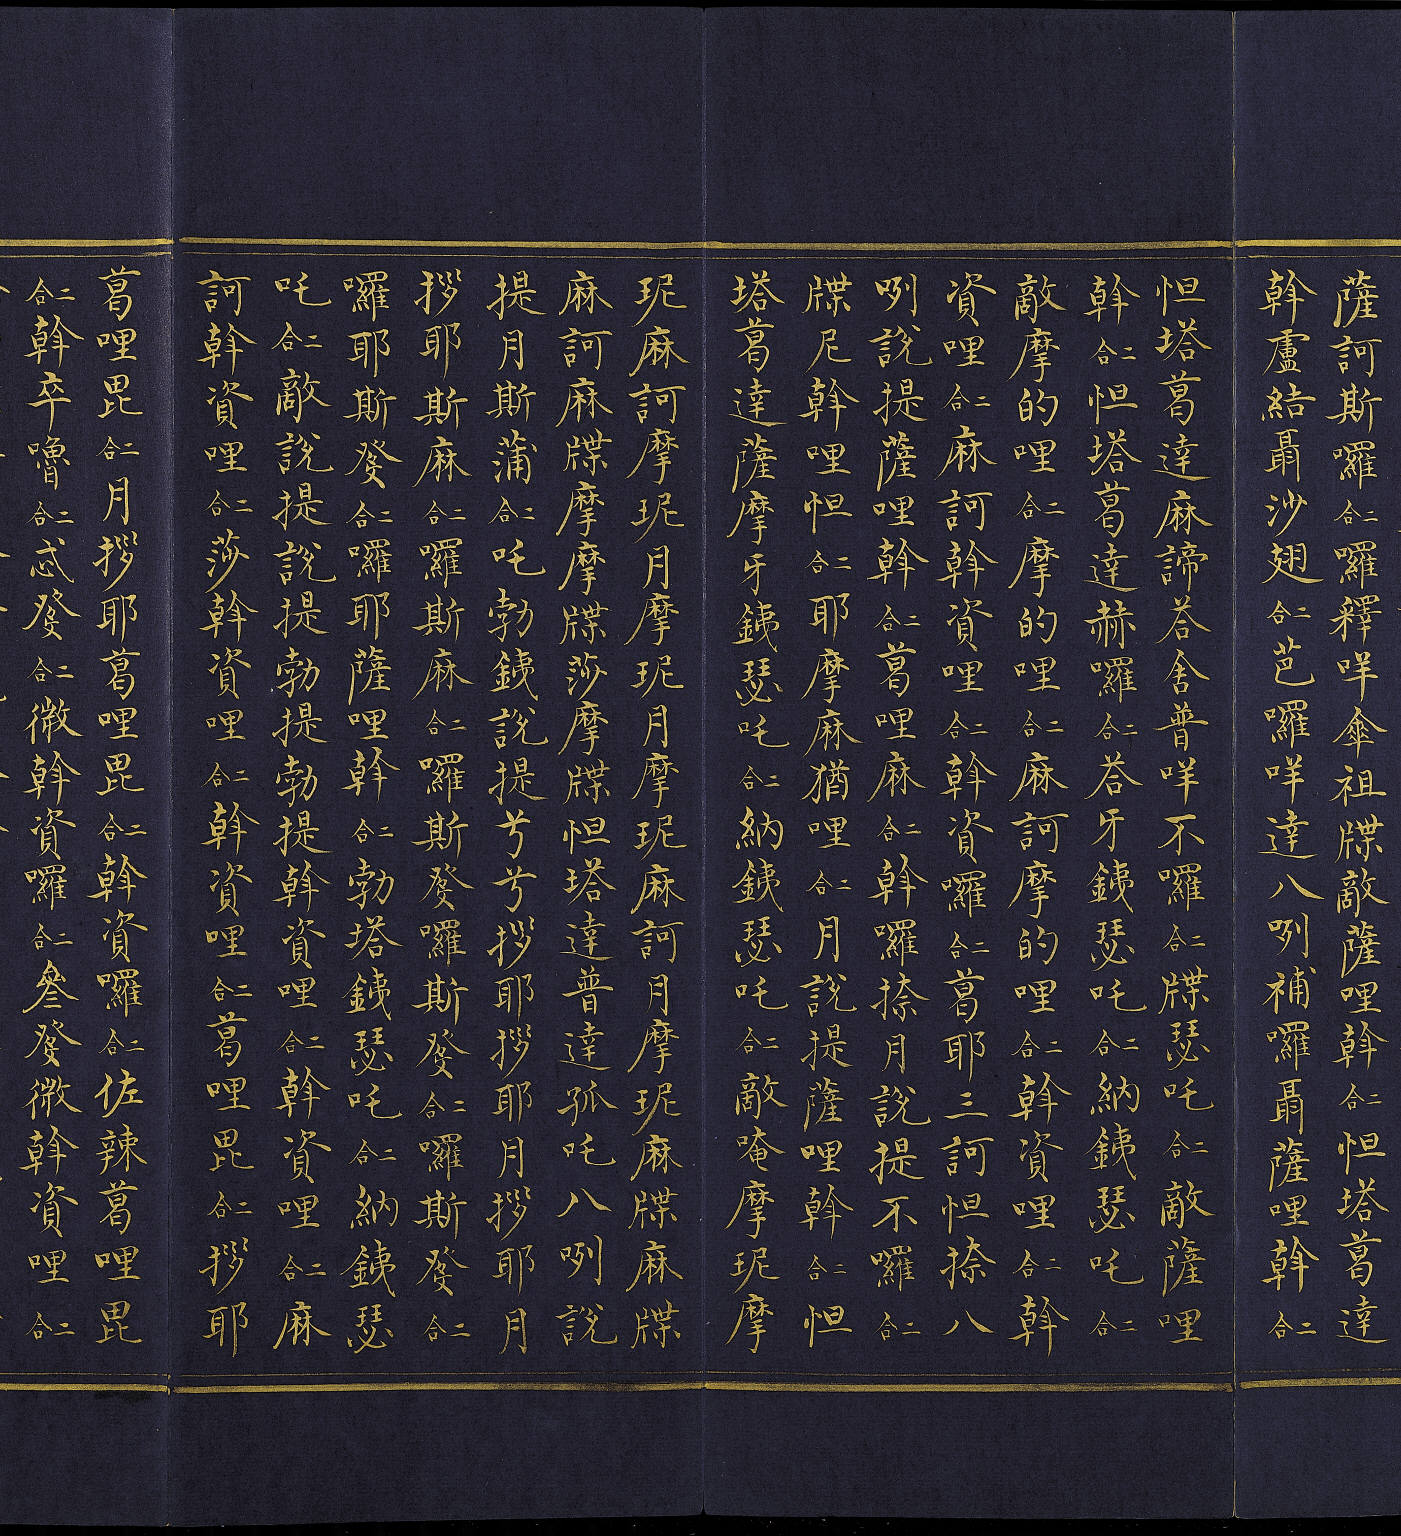 薩訶斯囉二合囉釋咩傘祖牒敵薩哩斡二合怛塔葛達
斡盧結聶沙翅二合芭囉咩達八咧補囉聶薩哩斡二合
怛塔葛達麻諦荅舍普咩不囉二合牒瑟吒二合敵薩哩
斡二合怛塔葛達赫囉二合荅牙銕瑟吒二合納銕瑟吒二合
敵摩的哩二合摩的哩二合麻訶摩的哩二合斡資哩二合斡
資哩二合麻訶斡資哩二合斡資囉二合葛耶三訶怛捺八
咧說提薩哩斡二合葛哩麻二合斡囉捺月說提不囉二合
牒尼斡哩怛二合耶摩麻猶哩二合月說提薩哩斡二合怛
塔葛達薩摩牙銕瑟吒二合納銕瑟吒二合敵唵摩抳摩
抳麻訶摩抳月摩抳月摩抳麻訶月摩抳麻牒麻牒
麻訶麻牒摩摩牒莎摩牒怛塔達普達孤吒八咧說
提月斯蒲二合吒勃銕說提兮兮拶耶拶耶月拶耶月
拶耶斯麻二合囉斯麻二合囉斯癹囉斯癹二合囉斯癹二合
囉耶斯癹二合囉耶薩哩斡二合勃塔銕瑟吒二合納銕瑟
吒二合敵說提說提勃提勃提斡資哩二合斡資哩二合麻
訶斡資哩二合莎斡資哩二合斡資哩二合葛哩毘二合拶耶
葛哩毘二合月拶耶葛哩毘二合斡資囉二合佐辣葛哩毘
二合斡卒嚕二合忒癹二合微斡資囉二合叅癹微斡資哩二合